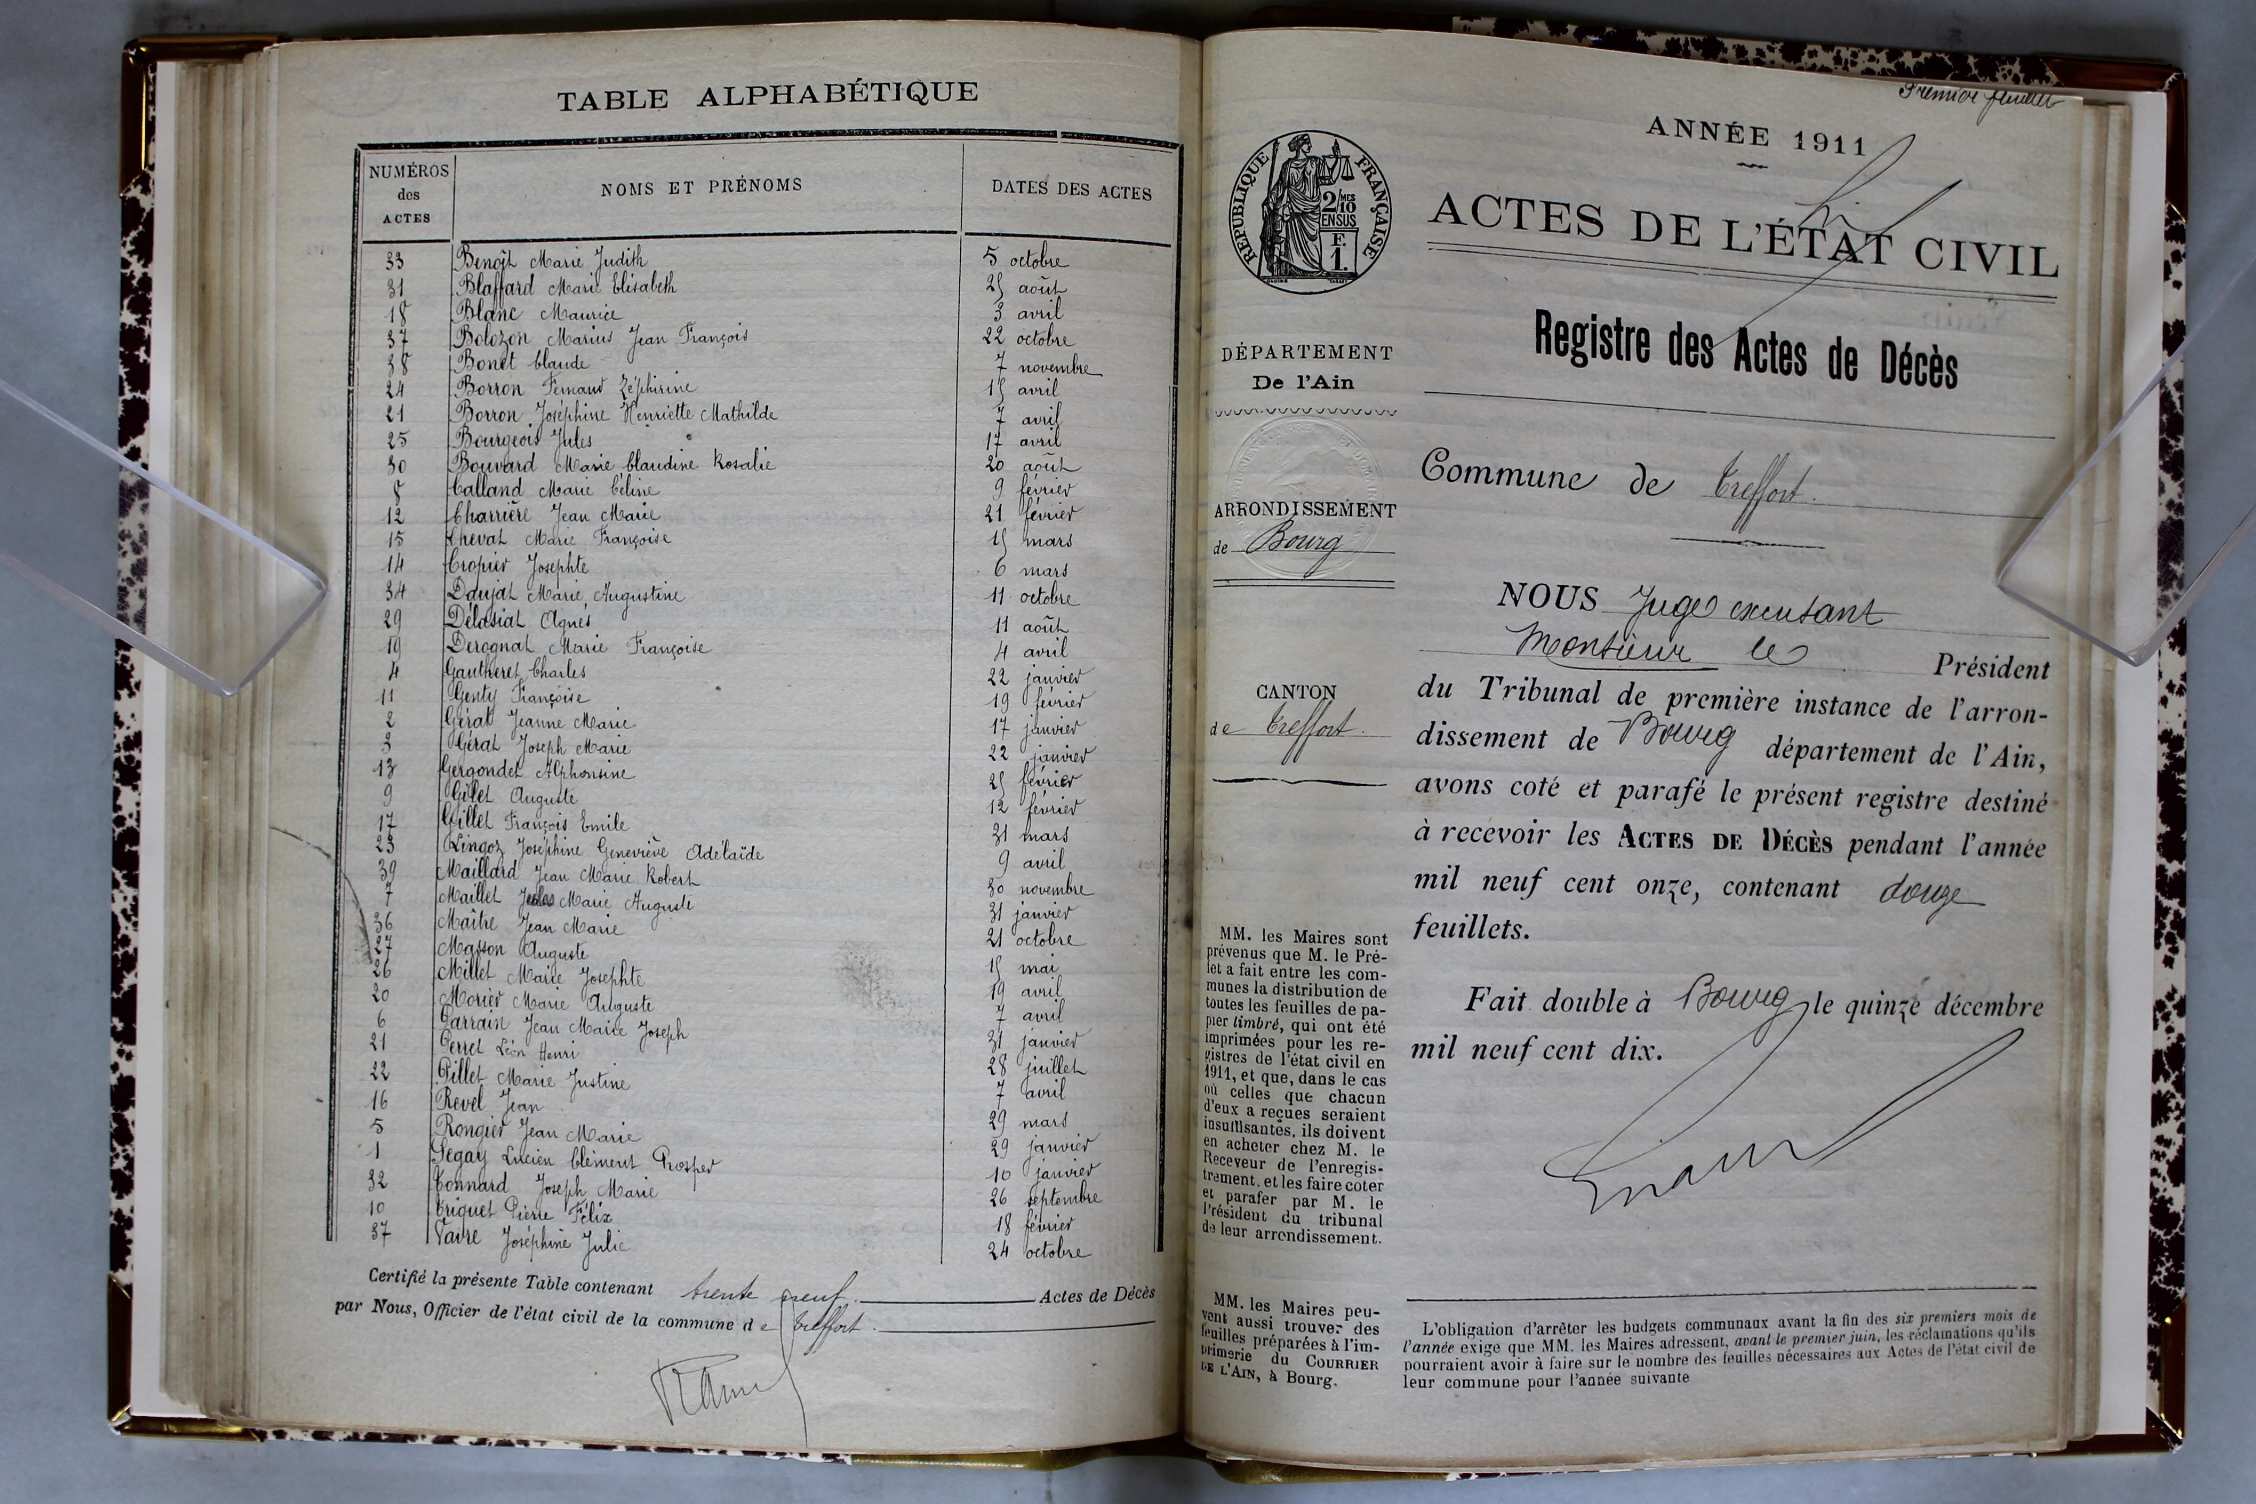 TABLE ALPHABÉTIQUE
NUMÉROS des ACTES NOMS ET PRÉNOMS DATES DES ACTES
33 Benoît Marie Judith 5 octobre
31 Blaffard Marie Elisabeth 25 août
18 Blanc Maurice 3 avril
37 Bolozon Marius Jean François 22 octobre
38 Bonet Claude 7 novembre
24 Borron Fernand Zéphirine 15 avril
21 Borron Joséphine Henriette Mathilde 7 avril
25 Bourgeois Jules 17 avril
30 Bouvard Marie Claudine Rosalie 20 août
8 Calland Marie Céline 9 février
12 Charrière Jean Marie 21 février
15 Chevat Marie Françoise 15 mars
14 Cropier Josephte 6 mars
34 Daujat Marie Augustine 11 octobre
29 Délasiat Agnès 11 août
19 Derognat Marie Françoise 4 avril
4 Gautheret Charles 22 janvier
11 Genty Françoise 19 février
2 Gérat Jeanne Marie 17 janvier
3 Gérat Joseph Marie 22 janvier
13 Gergondet Alphonsine 25 février
9 Gilet Auguste 12 février
17 Gillet François Emile 31 mars
23 Lingoz Joséphine Geneviève Adélaïde 9 avril
39 Maillard Jean Marie Robert 30 novembre
7 Maillet Jules Marie Auguste 31 janvier
36 Maître Jean Marie 21 octobre
27 Masson Auguste 15 mai
26 Millet Marie Josephte 19 avril
20 Morier Marie Auguste 7 avril
6 Parrain Jean Marie Joseph 31 janvier
21 Perret Léon Henri 28 juillet
22 Pillet Marie Justine 7 avril
16 Revel Jean 29 mars
5 Rongier Jean Marie 29 janvier
1 Segay Lucien Clément Prosper 10 janvier
32 Tonnard Joseph Marie 26 septembre
10 Triquet Pierre Félix 18 février
37 Vavre Joséphine Julie 24 octobre
Certifié la présente Table contenant trente neuf Actes de Décès
par Nous, Officier de l'état civil de la commune de Treffort.
Premier feuillet
ANNÉE 1911
RÉPUBLIQUE FRANÇAISE
2/10 MES
EN SUS
F.
1.
ACTES DE L'ÉTAT CIVIL
Registre des Actes de Décès
DÉPARTEMENT
De l'Ain
ARRONDISSEMENT
de Bourg
CANTON
de Treffort.
MM. les Maires sont
prévenus que M. le Pré-
fet a fait entre les com-
munes la distribution de
toutes les feuilles de pa-
pier timbré, qui ont été
imprimées pour les re-
gistres de l'état civil en
1911, et que, dans le cas
où celles que chacun
d'eux a reçues seraient
insuffisantes, ils doivent
en acheter chez M. le
Receveur de l'enregis-
trement, et les faire coter
et parafer par M. le
Président du tribunal
de leur arrondissement.
MM. les Maires peu-
vent aussi trouver des
feuilles préparées à l'im-
primerie du COURRIER
DE L'AIN, à Bourg.
Commune de Treffort.
NOUS Juge excusant
Monsieur le Président
du Tribunal de première instance de l'arron-
dissement de Bourg département de l'Ain,
avons coté et parafé le présent registre destiné
à recevoir les ACTES DE DÉCÈS pendant l'année
mil neuf cent onze, contenant douze
feuillets.
Fait double à Bourg le quinze décembre
mil neuf cent dix.
L'obligation d'arrêter les budgets communaux avant la fin des six premiers mois de
l'année exige que MM. les Maires adressent, avant le premier juin, les réclamations qu'ils
pourraient avoir à faire sur le nombre des feuilles nécessaires aux Actes de l'état civil de
leur commune pour l'année suivante